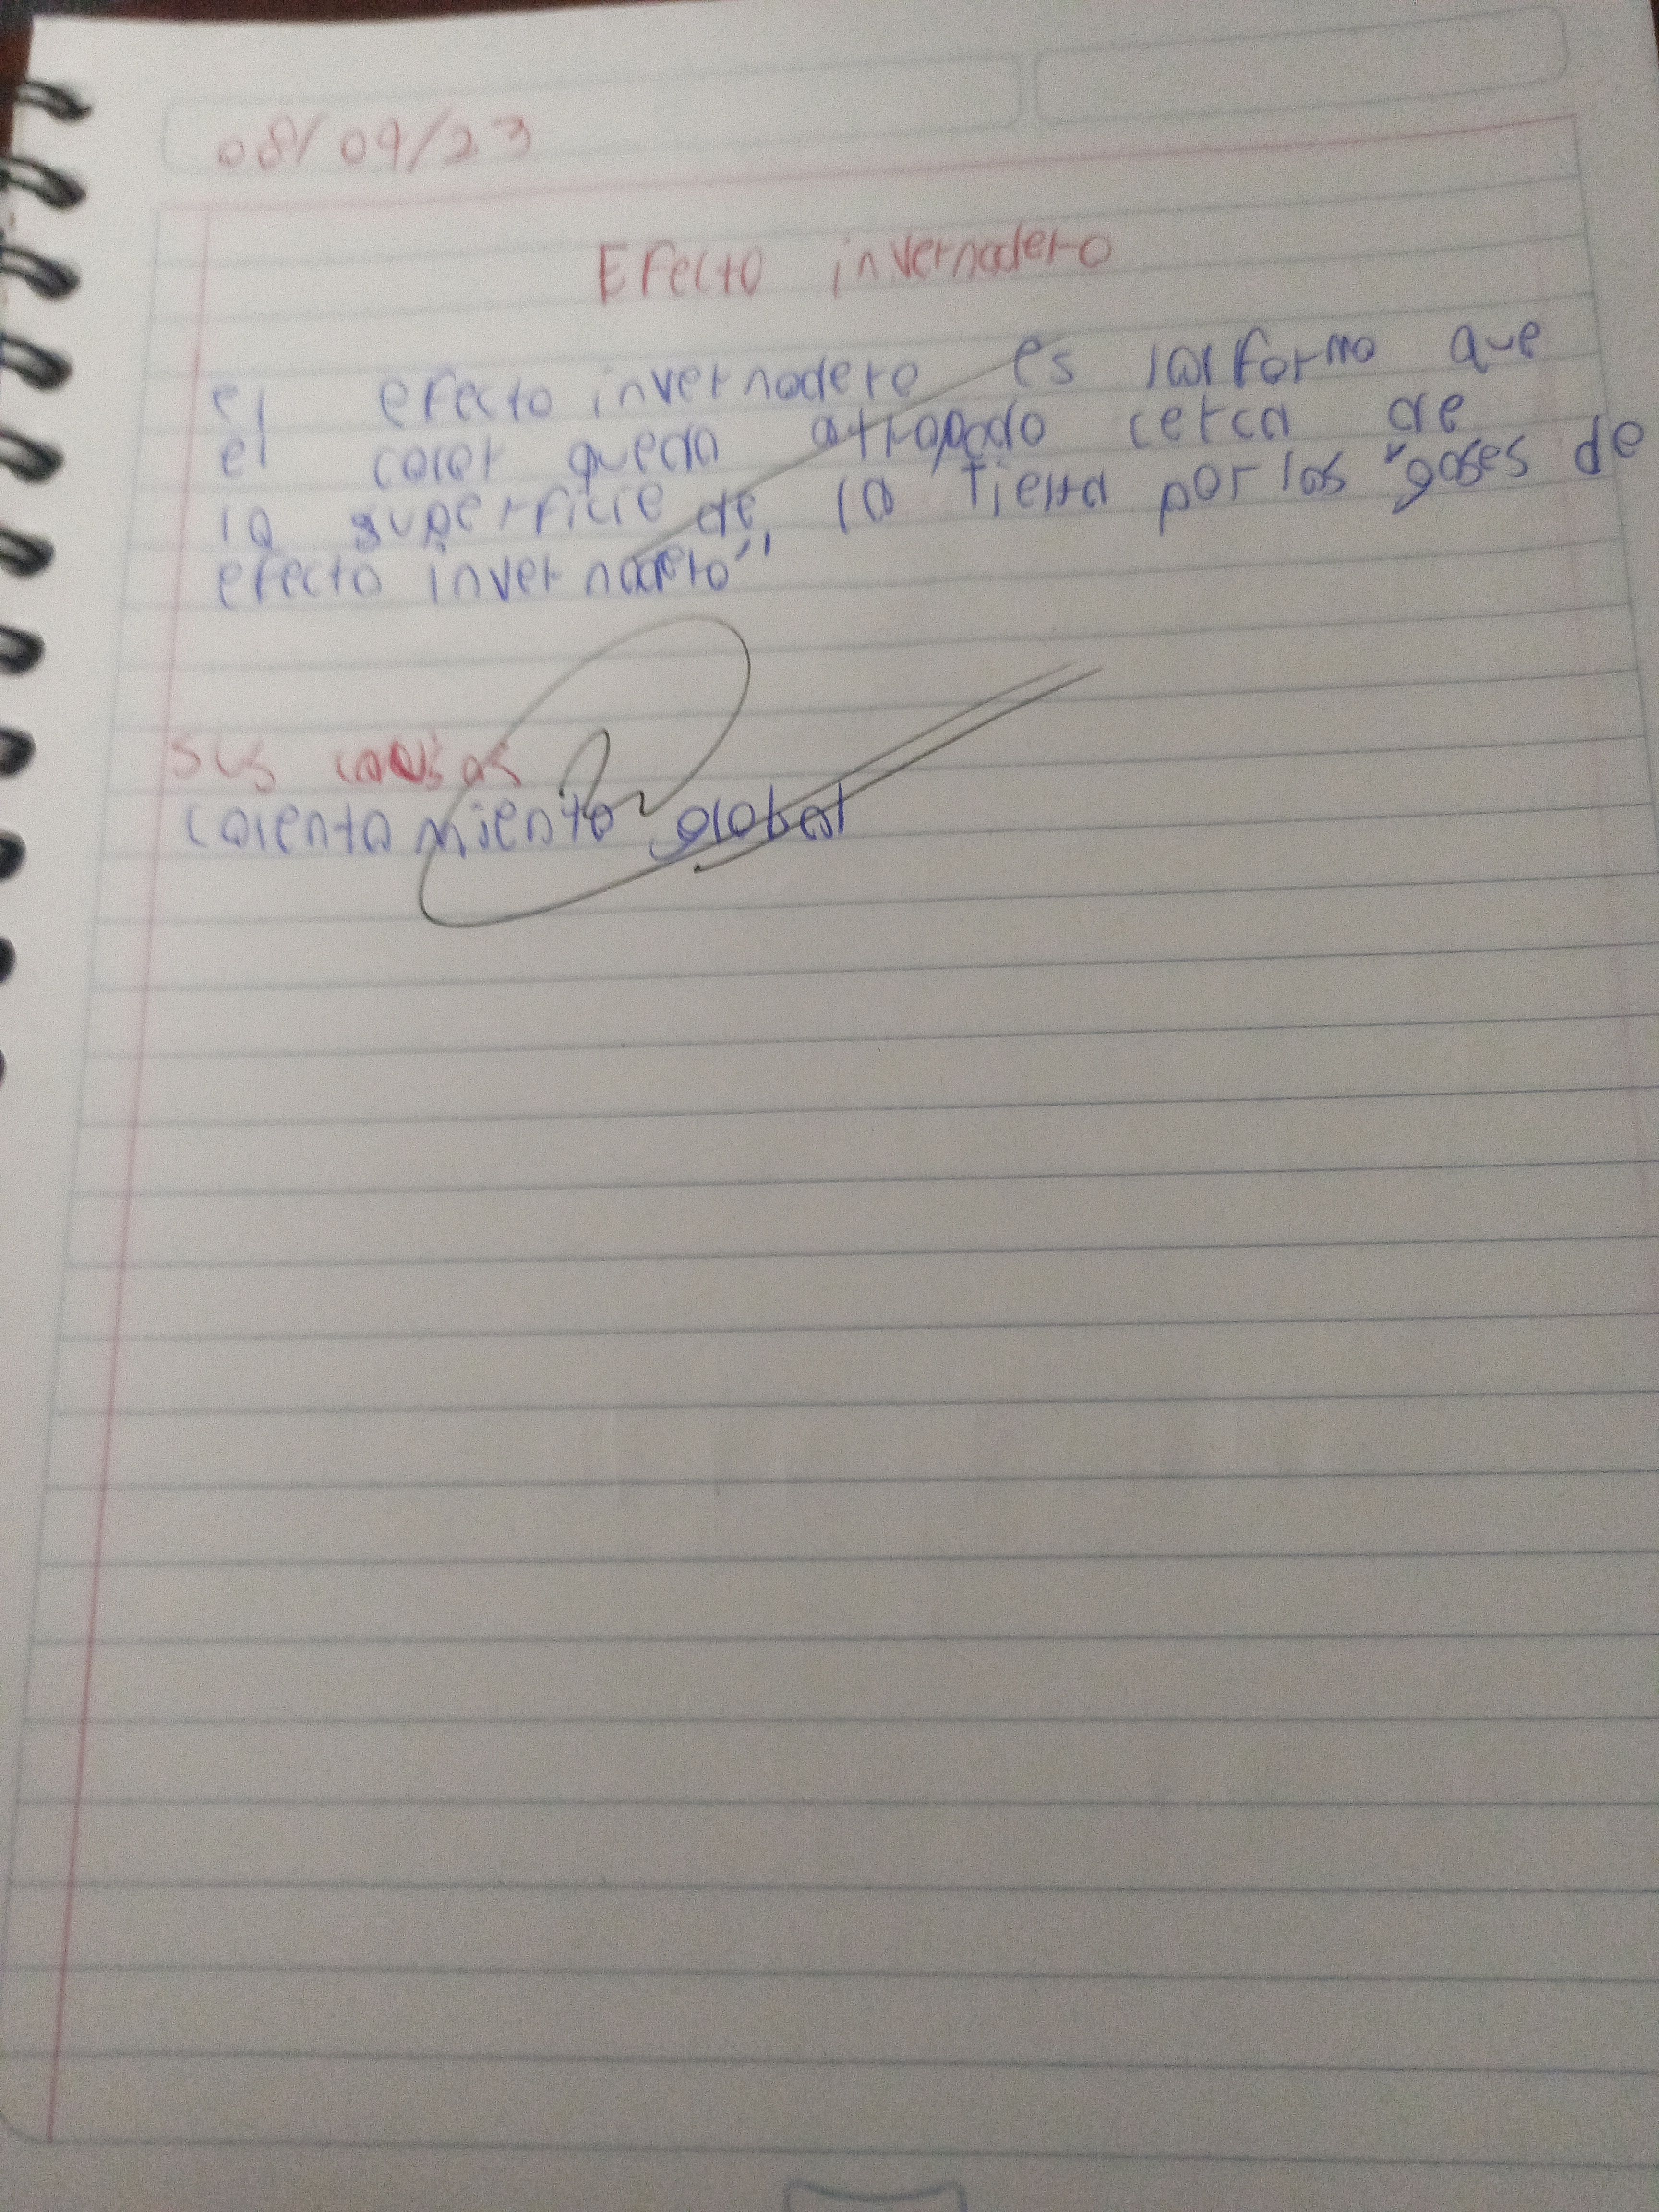 08/09/23
Efecto invernadero
el efecto invernadero es la forma que
el calor queda atrapado cerca de
la superficie de la Tierra por los "gases de
efecto invernadero"
sus causas
calentamiento global